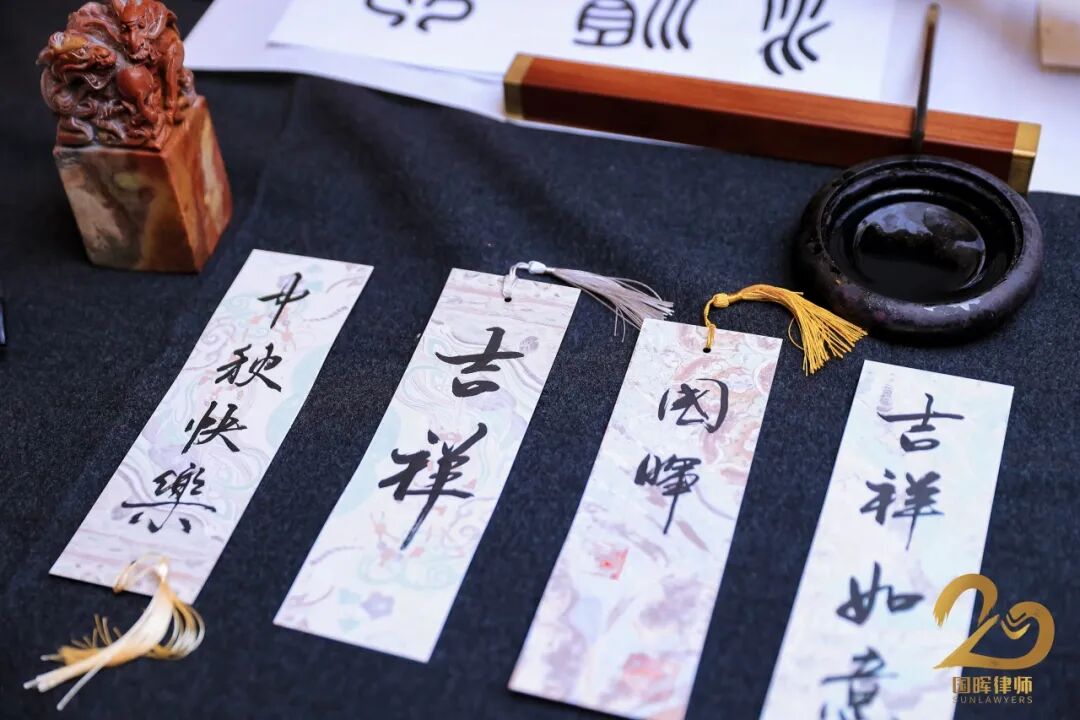 中秋快樂
吉祥
國暉
吉祥如意
20
国晖律师
SUNLAWYERS